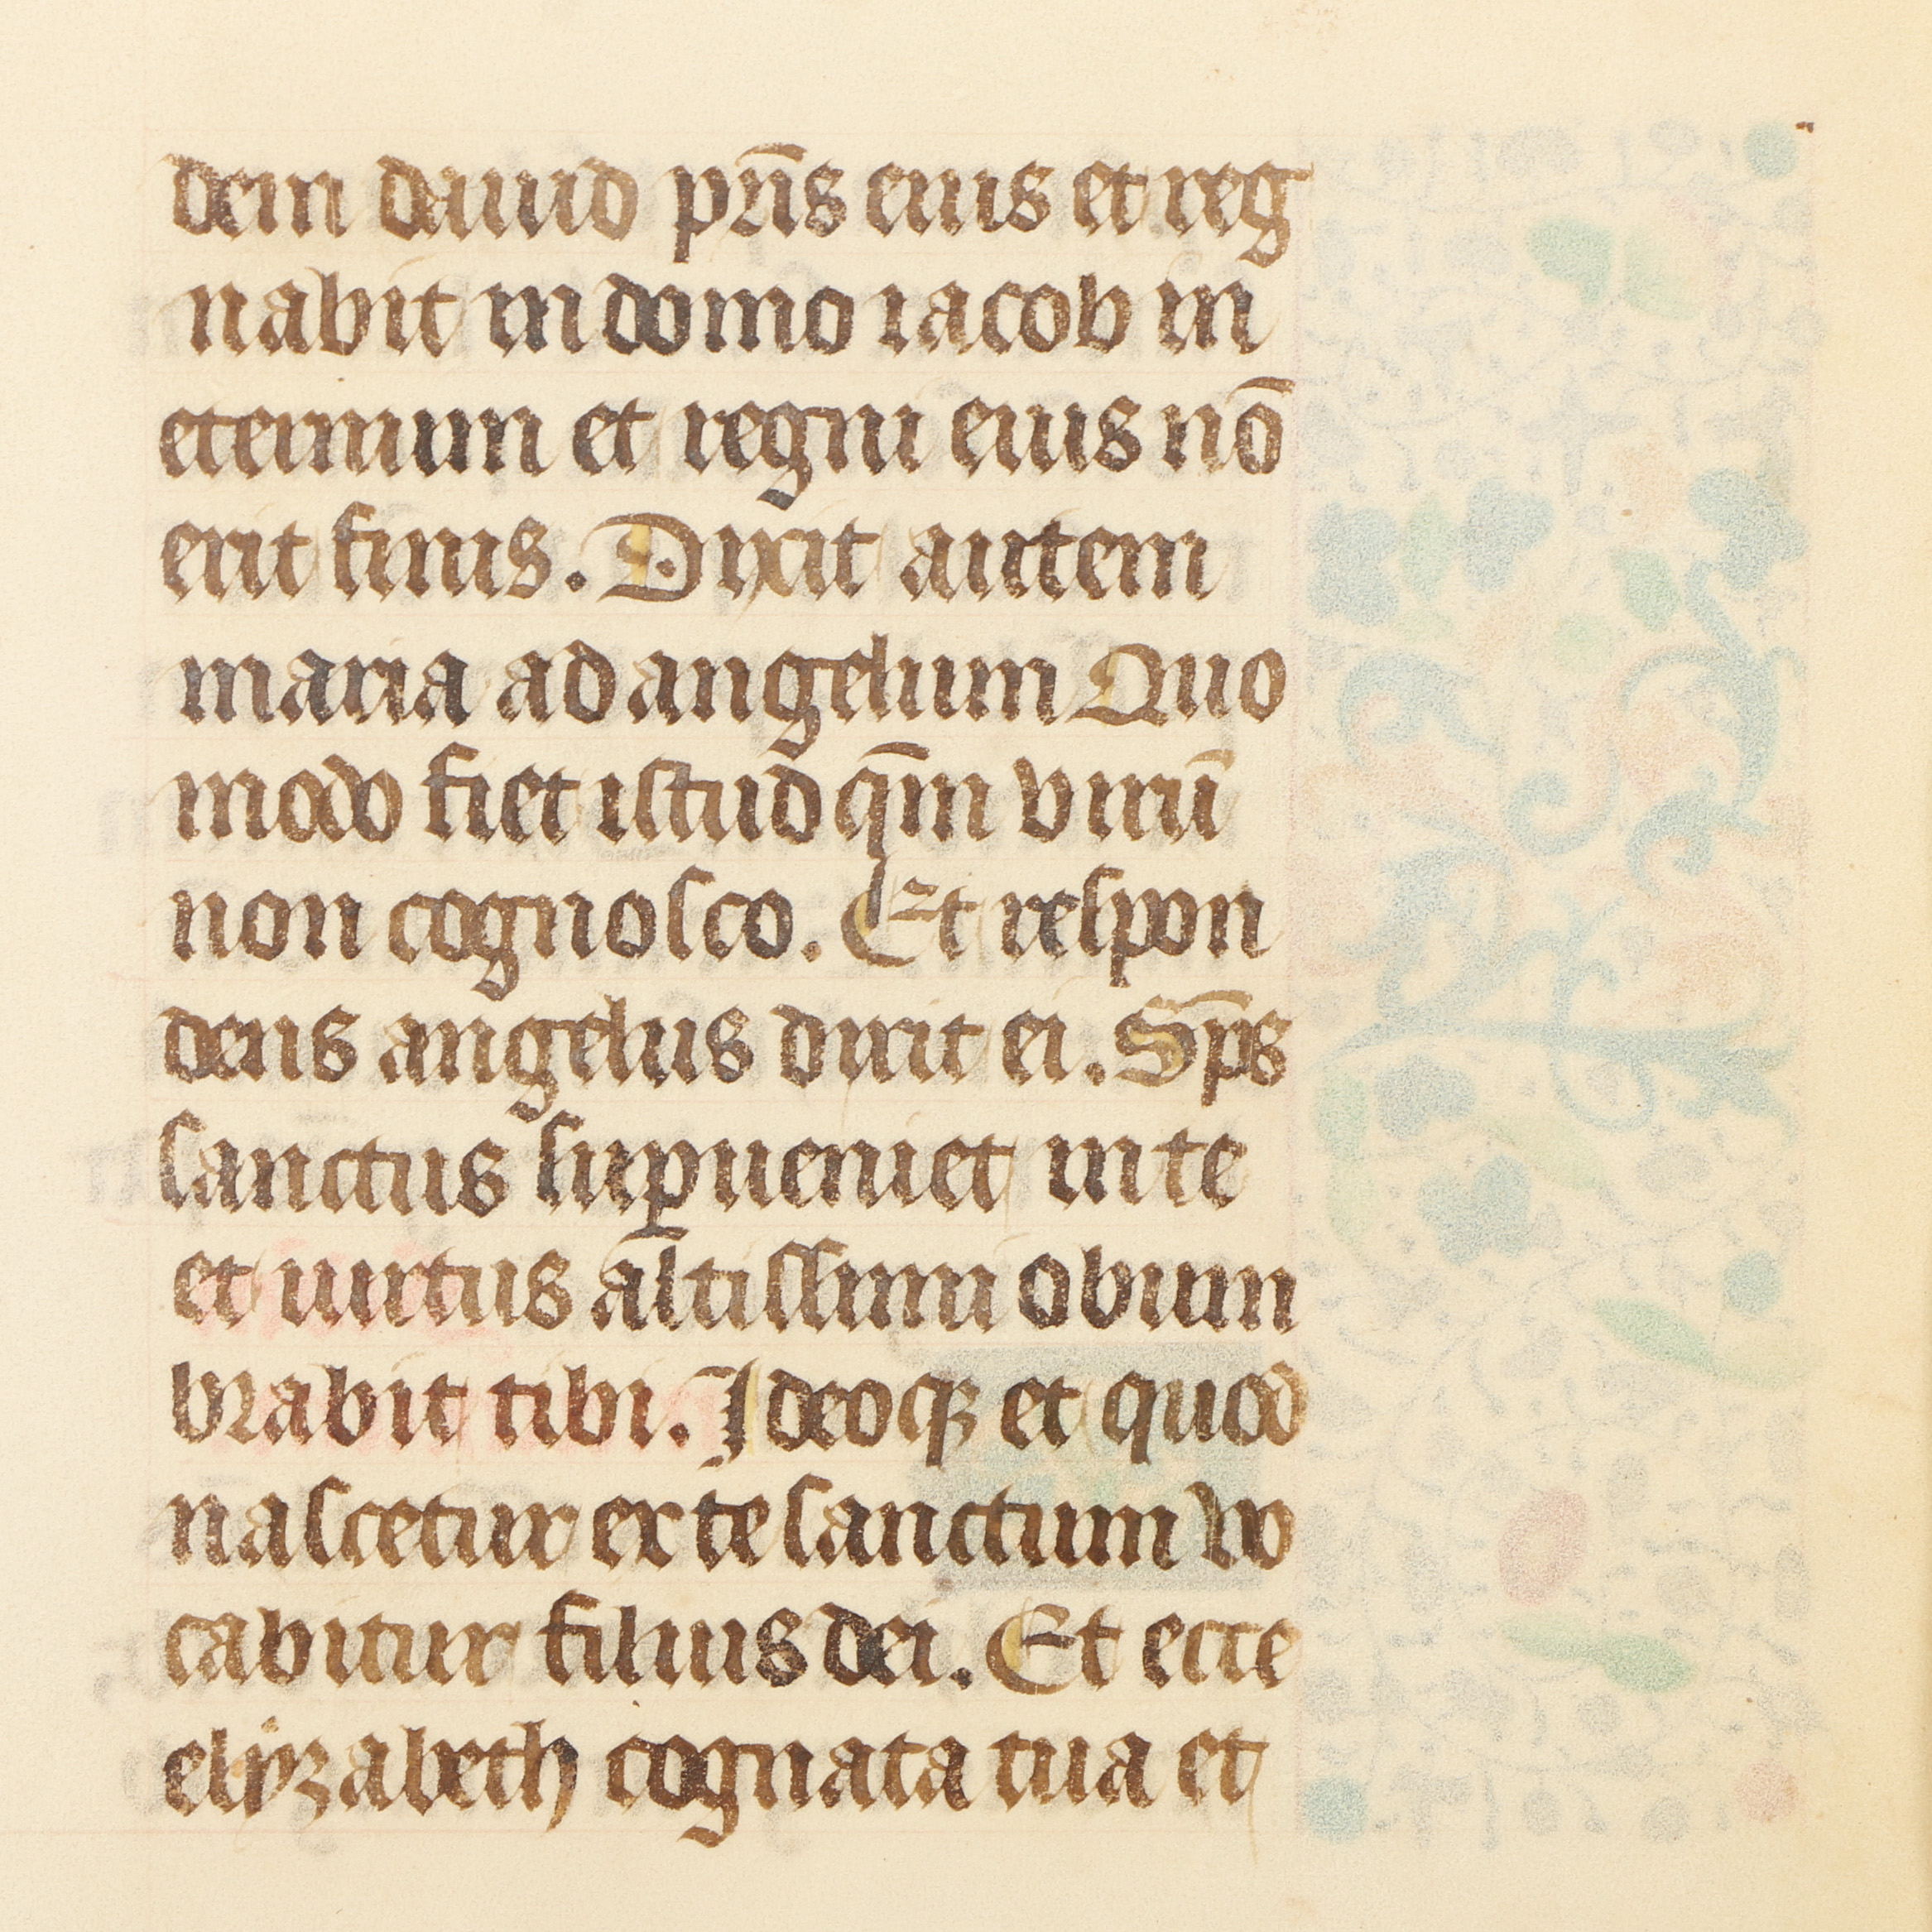 dem dauid pr̄is eius et reg
nabit in domo iacob in
eternum et regni eius nō
erit finis. Dixit autem
maria ad angelum Quo
modo fiet istud qm̄ virū
non cognosco. Et respon
dens angelus dixit ei. Sp̄s
sanctus suꝑueniet in te
et uirtus altissimi obum
brabit tibi. Ideoqꝫ et quod
nascetur ex te sanctum vo
cabitur filius dei. Et ecce
elyzabeth cognata tua et